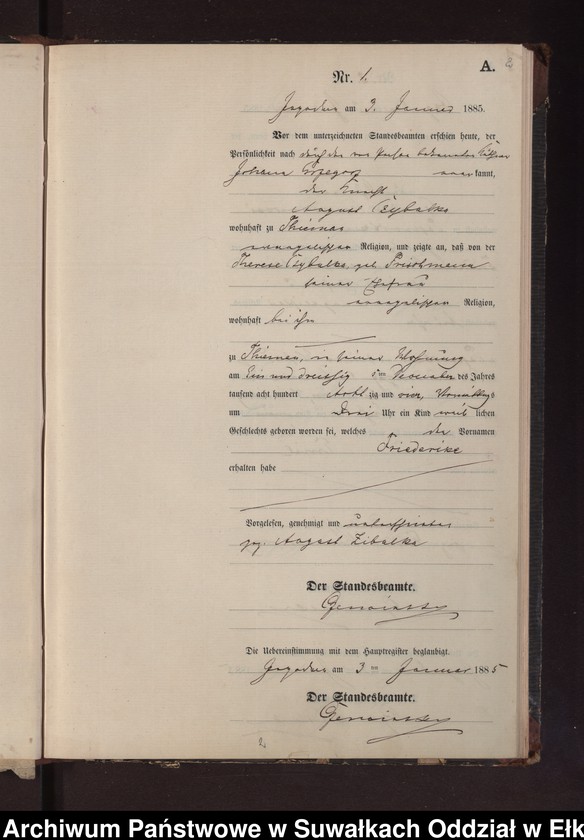 A.
Nr. 1.
am 3. Januar 1885.
Vor dem unterzeichneten Standesbeamten erschien heute, der
Persönlichkeit nach durch den von Person bekannten
Johann kannt,
der Knecht
August Czybulka
wohnhaft zu
evangelischer Religion, und zeigte an, daß von der
Therese Czybulka geb.
seiner Ehefrau
evangelischer Religion,
wohnhaft bei ihm
zu in seiner Wohnung
am ein und dreissig ten Dezember des Jahres
tausend acht hundert acht zig und vier, Vormittags
um Drei Uhr ein Kind weib lichen
Geschlechts geboren worden sei, welches den Vornamen
Friederike
erhalten habe
Vorgelesen, genehmigt und unterschrieben
gez. August Zibulka
Der Standesbeamte.
Die Uebereinstimmung mit dem Hauptregister beglaubigt.
am 3 ten Januar 1885
Der Standesbeamte.
2.
Archiwum Państwowe w Suwałkach Oddział w Ełk